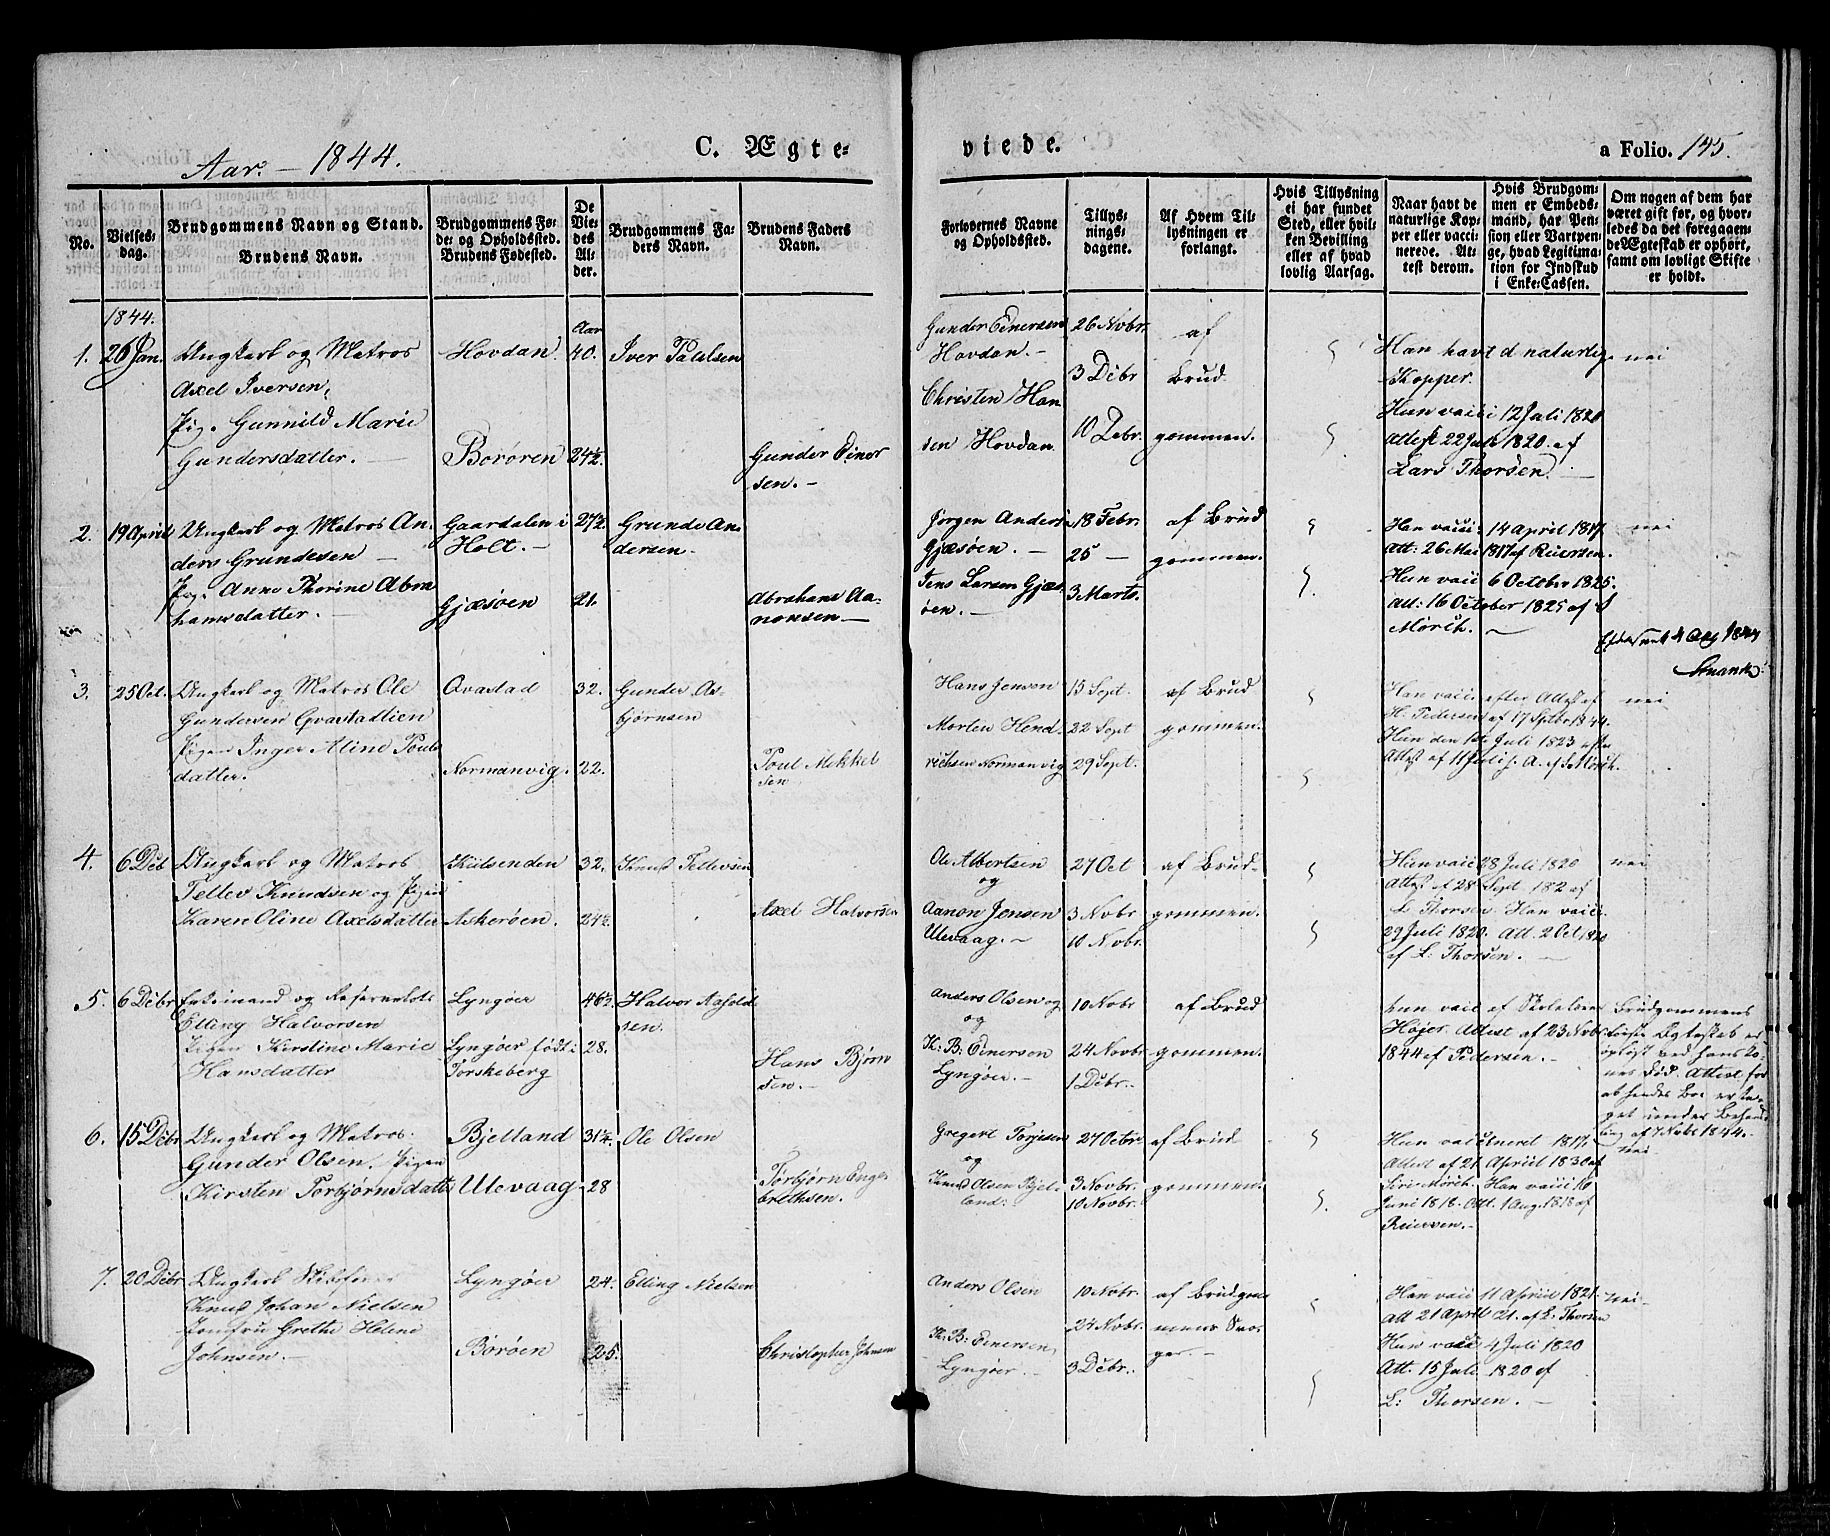 Aar. 1844. C. Ægte=
viede. a Folio. 145.
No.
Vielses=
dag.
Brudgommens Navn og Stand.
Brudens Navn.
Brudgommens Fø=
de= og Opholdssted.
Brudens Fødested.
De
Vie=
des
Al=
der.
Brudgommens Fa=
ders Navn.
Brudens Faders
Navn.
Forlovernes Navne
og Opholdssted.
Tillys=
nings=
dagene.
Af Hvem Til=
lysningen er
forlangt.
Hvis Tillysning
ei har fundet
Sted, eller hvil=
ken Bevilling
eller af hvad
lovlig Aarsag.
Naar havt de
naturlige Kop=
per eller vacci=
nerede. At=
test derom.
Hvis Brudgom=
men er Embeds=
mand, har Pen=
sion eller Vartpen=
ge, hvad Legitima=
tion for Indskud
i Enke=Cassen.
Om nogen af dem har
været gift før, og hvor=
ledes da det foregaaen=
de Ægteskab er ophørt,
samt om lovligt Skifte
er holdt.
1844.
1. 26 Jan.
Ungkarl og Matros
Axel Iversen,
Pig. Gunnild Marie
Gundersdatter.
Hovdan.
Borøren
Aar
40.
24½
Iver Paulsen
Gunder Einer
sen.
Gunder Einersen
Hovdan.
Christen Han
sen Hovdan
26 Novbr.
3 Debr
10 Debr.
af
Brud
gommen.
Han havt d naturlige
Kopper.
Hun vacci 12 Juli 1820
Attest 22 Juli 1820. af
Lars Thorsen.
nei
2. 19 April
Ungkarl og Matros An
ders Grundesen
Pig. Anne Thorine Abra
hamsdatter.
Gaardalen i
Holt.
Gjæsøen
27½
21.
Grunde An
dersen.
Abrahans Aa=
nonsen
Jørgen Anders
Gjæsøen.
Jens Larsen Gjæs
øen.
18 Febr.
25
3 Marts.
af Brud
gommen.
Han vacci. 14 April 1817
Att: 26 Mai 1817 af Reiersen.
Hun vacc 6 October 1825.
Att: 16 October 1825 af S
Mørch.
nei
3. 25 Oct.
Ungkarl og Matros Ole
Gundersen Qvastadlien
Pigen Inger Aline Pouls
datter.
Qvastad
Normanvig.
32.
22.
Gunder As
bjørnsen
Poul Mikkel
sen
Hans Jensen
Morten Hend
richsen Normanvig
15 Sept.
22 Sept
29 Sept.
af Brud
gommen.
Han vacci efter Attest af
H. Pedersen af 17 Septbr 1844.
Hun den 1ste Juli 1823 efter
Attest af 11 Juli s. A. af S. Mørch.
nei
4. 6 Deb
Ungkarl og Matros
Tellev Knudsen og Pigen
Karen Oline Axelsdatter
Kiilsenden
Askerøen.
32.
24½
Knud Tellevsen
Axel Halvorsen
Ole Albertsen
og
Aanon Jensen
Ulevaag.
27 Oct
3 Novbr
10 Novbr.
af Brud
gommen.
Hun vacc 28 Juli 1820
Attest af 28 Sept 182 af
L Thorsen. Han vacc
29 Juli 1820. Att. 2 Oct 1820
af L: Thorsen.
nei
5. 6 Debr
Enkemand og
Elling Halvorsen
Pigen Kirstine Marie
Hansdatter
Lyngøer
Lyngøer født i
Torskeberg
46½
28.
Halvor
sen.
Hans Bjørn
sen.
Anders Olsen og
og
K: B: Einersen
Lyngøer.
10 Novbr
24 Novbr.
1 Debr.
af Brud
gommen.
hun vacc af Skolelærer
Højer. Attest af 23 Novbr
1844 af Pedersen.
Brudgommens
første Egteskab er
opløst ved hans Ko=
nes Død. Attest for
at hendes Boe er ta=
get under Behand
ling af 7 Novbr 1844.
nei.
6. 15 Debr
Ungkarl og Matros.
Gunder Olsen. Pigen
Kirsten Torbjørnsdatt
Bjelland
Ulevaag
31¼
28
Ole Olsen
Torbjørn Enge
brethsen.
Gregert Torjesen
og
Knud Olsen Bjel=
land:
27 Octbr
3 Novbr.
10 Novbr.
af Brud
gommen.
Hun vaccineret 1817,
Attest af 21 April 1830 af
Siri Mørch. Han vacci 16
Juni 1818. Att. 1 Aug. 1818 af
Reiersen.
7. 20 Debr
Ungkarl Skibsfører
Knud Johan Nielsen
Jomfru Grethe Helene
Johnsen.
Lyngøer
Borøen
24.
25.
Elling Nielsen
Christopher Johnsen
Anders Olsen
K: B: Einersen,
Lyngøer
10 Novbr.
24 Novbr.
3 Debr.
af Brudgom
mens Svo=
ger.
Han vacc 11 April 1821.
Att 21 April 21. af L. Thorsen
Hun vacc 4 Juli 1820
Att. 15 Juli 1820 af
L: Thorsen.
nei